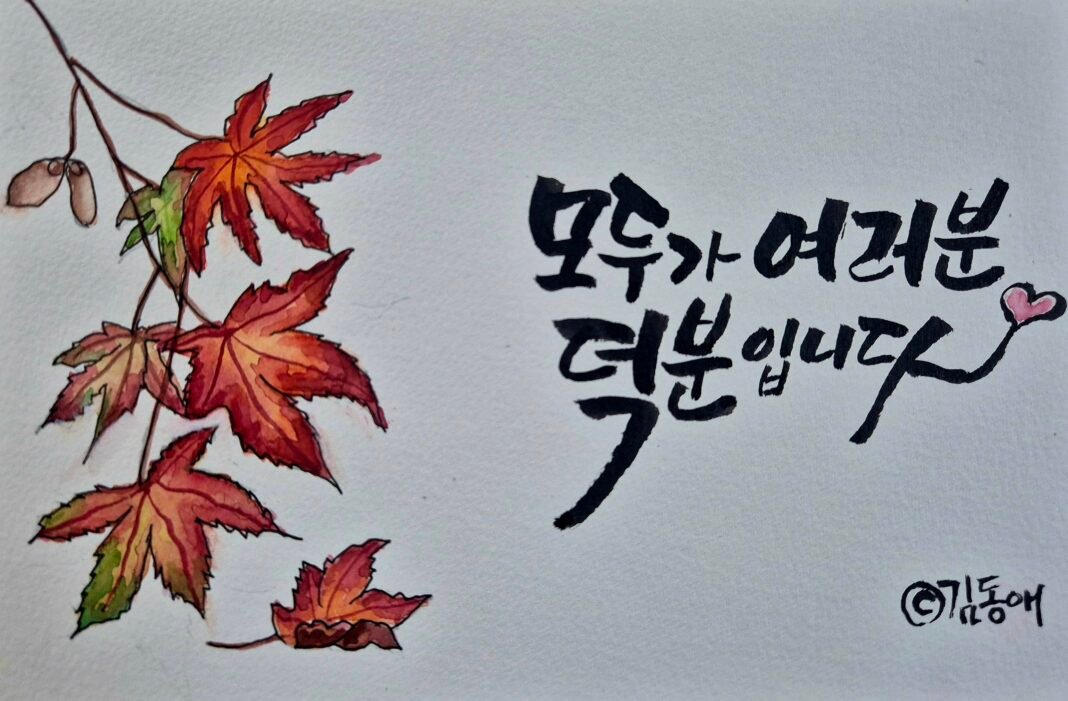 모두가 여러분
덕분입니다
©김동애